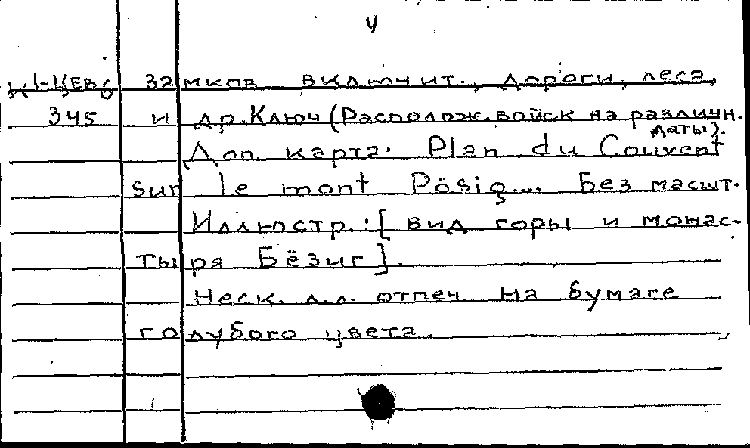 4
К1-Цев6 32 мков включит., дороги, леса,
345 и др. Ключ (Располож. войск на различн. даты).
Доп. карта: Plan du Couvent
sur le mont Pösig... Без масшт.
Иллюстр.: [вид горы и монас-
тыря Бёзиг].
Неск. л.л. отпеч. на бумаге
голубого цвета.